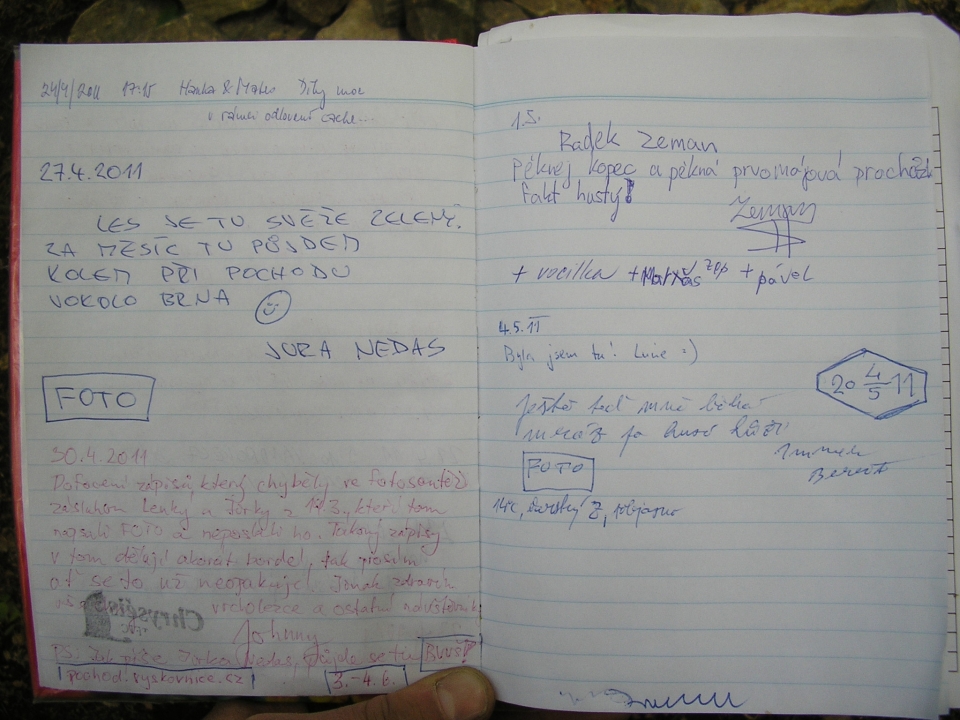 24/4/2011 17:15 Hanka & Mirko Díky moc
v rámci odlovení cache...
27.4.2011
LES JE TU SVĚŽE ZELENÝ.
ZA MĚSÍC TU PŮJDEM
KOLEM PŘI POCHODU
VOKOLO BRNA
JURA NEDAS
FOTO
30.4.2011
Dofocení zápisů, který chyběly ve fotosoutěži
zásluhou Lenky a Jirky z kteří tam
napsali FOTO a neposlali ho. Takový zápisy
v tom dělají akorát bordel, tak prosím
ať se to už neopakuje! Jinak zdravím
vrcholožce a ostatní návštěvníky
Chryséis
Johnny
PS: Jak píše Jirka Nedas, půjde se tu BVV!
pochod.vyskovnice.cz 3.-4.6.
1.5.
Radek Zeman
Pěknej kopec a pěkná prvomájová procházka
fakt hustý!
Zeman
+ vocilka + + pável
4.5.11
Byla jsem tu! Lucie =)
20 4/5 11
Ještě teď mně běhá
mráz po kůži
FOTO
14°C,